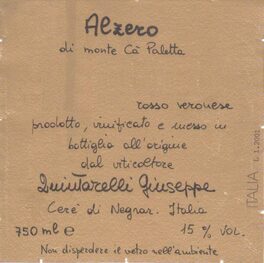 Alzero
di monte Cà Paletta
rosso veronese
prodotto, vinificato e messo in
bottiglia all'origine
dal viticoltore
Quintarelli Giuseppe
Cerè di Negrar. Italia
750 ml e 15% VOL.
Non disperdere il vetro nell'ambiente
ITALIA L 1.2002